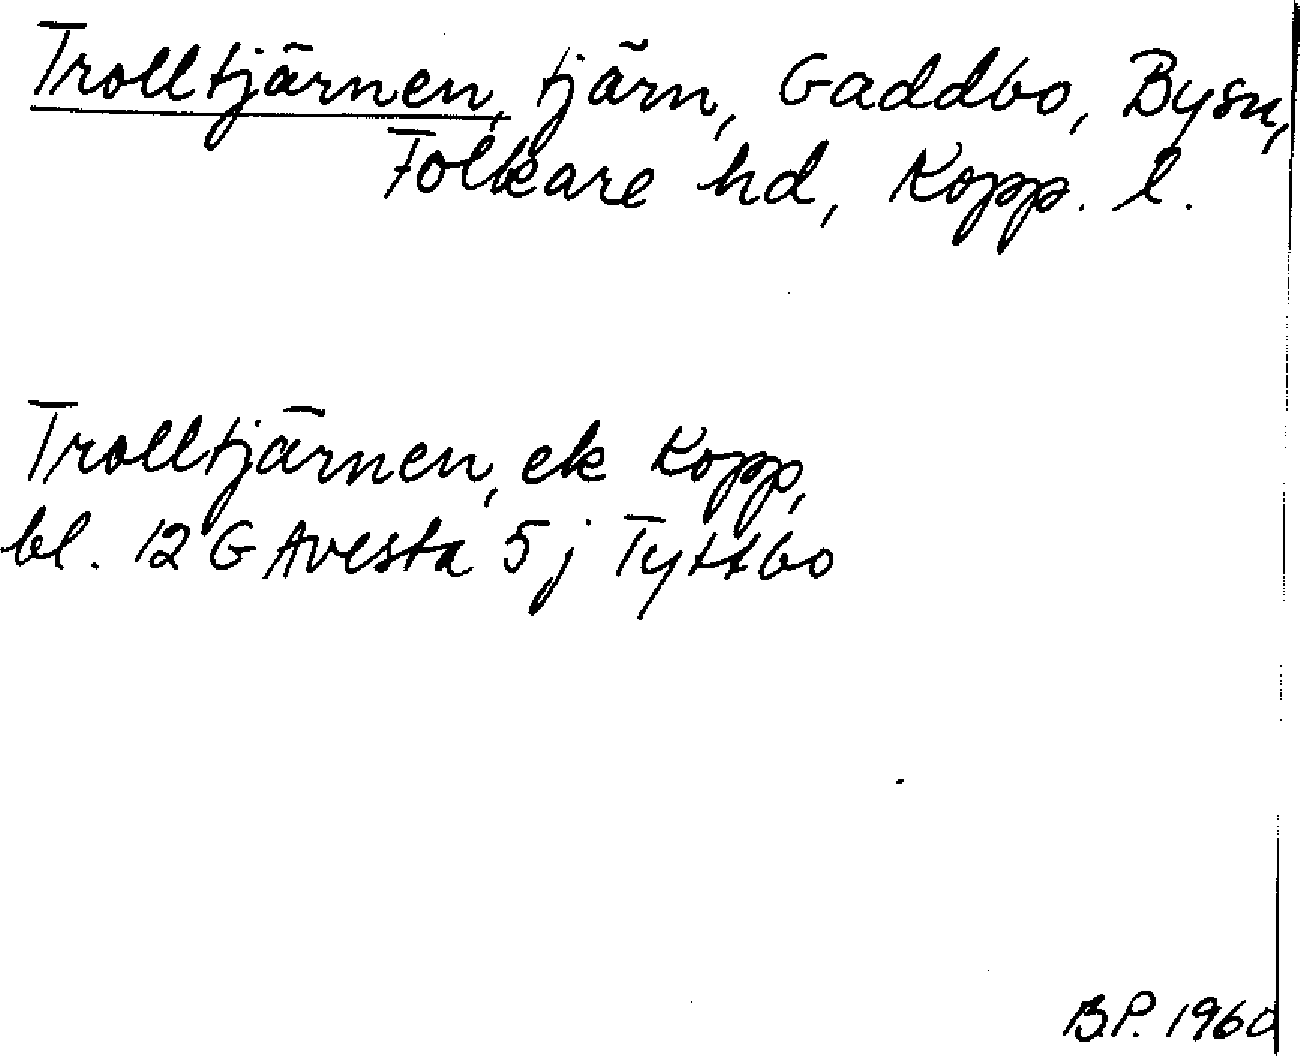 Trolltjärnen, tjärn, Gaddbo, Bysn,
Folkare hd, Kopp. l.
Trolltjärnen, ek Kopp,
bl. 12 G Avesta 5j Tyttbo
B.P. 1960